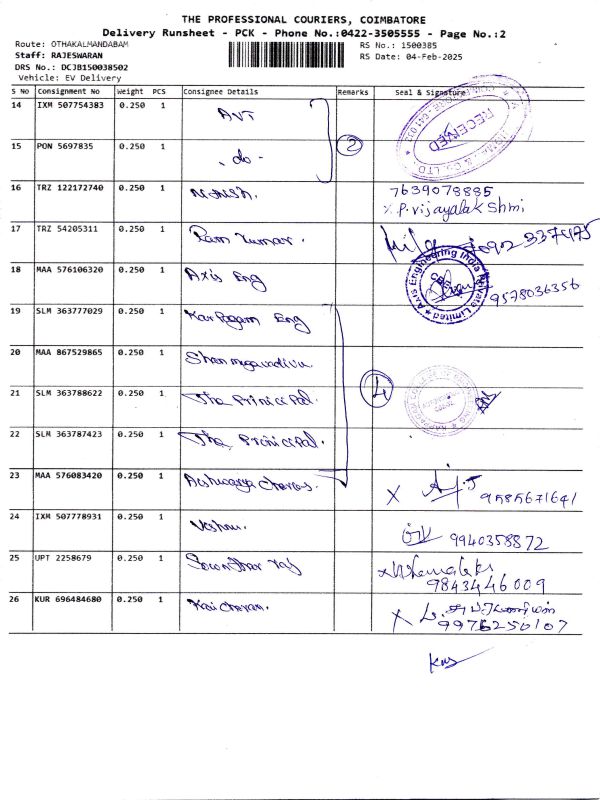 THE PROFESSIONAL COURIERS, COIMBATORE
Delivery Runsheet - PCK - Phone No.:0422-3505555 - Page No.:2
Route: OTHAKALMANDABAM
RS No.: 1500385
Staff: RAJESWARAN
RS Date: 04-Feb-2025
DRS No.: DCJB150038502
Vehicle: EV Delivery
S No Consignment No Weight PCS Consignee Details Remarks Seal & Signature
14 IXM 507754383 0.250 1 AVT
RECEIVED
15 PON 5697835 0.250 1 - do - 2
16 TRZ 122172740 0.250 1
7639078885
P. Vijayalakshmi
17 TRZ 54205311 0.250 1 Ram Kumar.
18 MAA 576106320 0.250 1 Axis Eng 9578036356
Axis Engineering India Private Limited
19 SLM 363777029 0.250 1 Karpagam Eng
20 MAA 867529865 0.250 1 Shanmugavadivu
21 SLM 363788622 0.250 1 The Principal. 4
22 SLM 363787423 0.250 1 The Principal.
23 MAA 576083420 0.250 1 Aishwarya X 9585671641
24 IXM 507778931 0.250 1 9940358872
25 UPT 2258679 0.250 1
9843446009
26 KUR 696484680 0.250 1 X
9976250107